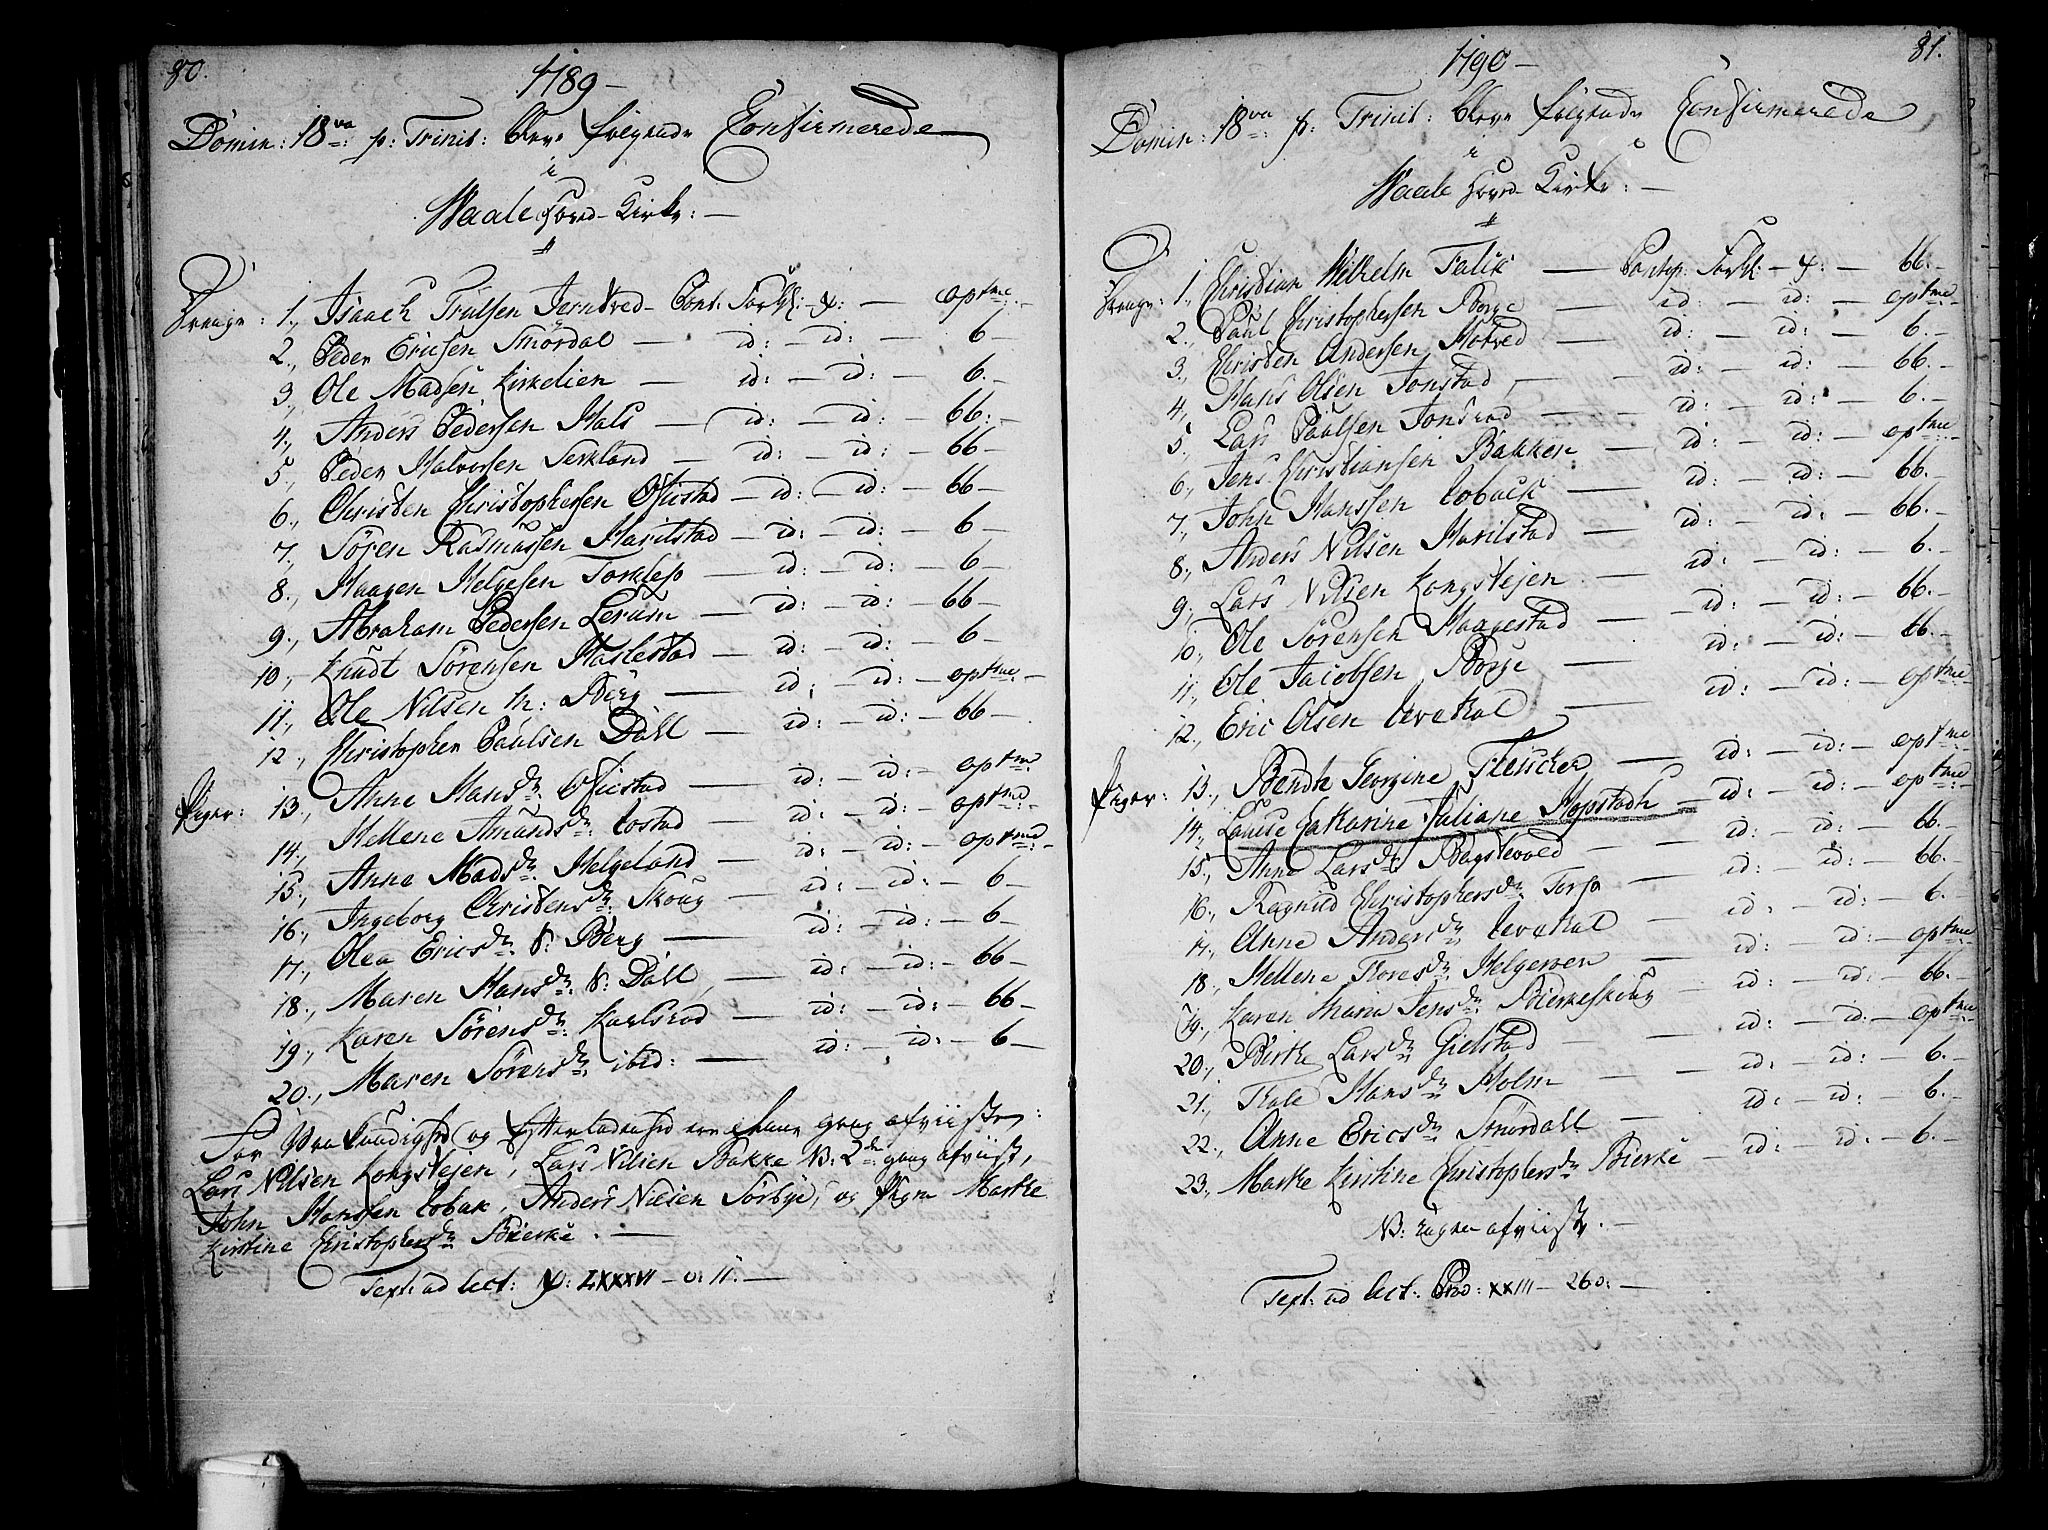 80.
1789 –
Domin: 18va p: Trinit: bleve følgende Confirmerede
i
Waale Hoved-Kirke: –
Drenge: 1., Isaach Trulsen Jerntved – Pont: Forkl: – x: – optme: –
2., Peder Ericsen Smördal – id: – id: – b –
3., Ole Madsen Kirkelien – id: – id: – b. –
4., Anders Pedersen Hals – id: – id: – bb: –
5., Peder Halvorsen Serkland – id: – id: – bb –
6., Christen Christophersen Ofiustad – id: – id: – bb –
7., Sören Rasmussen Harilstad – id: – id: – b –
8., Haagen Helgesen Torklep – id: – id: – b –
9., Abraham Pedersen Lerum – id: – id: – bb –
10., Knudt Sörensen Haslestad – id: – id: – b –
11., Ole Nilsen m: Berg – id: – id: – optme: –
12., Christopher Paulsen Dall – id: – id: – bb –
Piger: 13., Anne Hansdr: Ofiustad – id: – id: – optme
14., Hellene Amundsdr: Lostad – id: – id: – optme: –
15., Anne Madsdr: Helgeland – id: – id: – optme: –
16., Ingeborg Christensdr: Skoug – id: – id: – b –
17., Olea Ericsdr: S: Berg – id: – id: – b –
18., Maren Hansdr: S: Dall, – id: – id: – bb –
19., Karen Sörensdr: Karlsrod – id: – id: – bb –
20., Maren Sörensdr: ibid: – id: – id: – b –
For Vankundighed og Efterladenhed ere denne gang afviiste:
Lars Nilsen Kongstejen, Lars Nilsen Bakke NB: 2den gang afviist,
John Hanssen Lobak, Anders Nilsen Sörbye, og Pigen Marthe
Kirstine Christophersdr: Bierke. –
Text: ad Act: ψ: LXXXVI – v: 11. –
81.
1790 –
Domin: 18va p: Trinit: bleve følgende Confirmerede
i
Waale Hoved-Kirke: –
Drenge: 1., Christian Wilhelm Falik – Pontop: Forkl: – x: – bb. –
2., Paul Christophersen Borge – id: – id: – optme
3., Christen Andersen Hotved – id: – id: – b. –
4., Hans Olsen Jonstad, – id: – id: – bb. –
5., Lars Paulsen Jonsrod – id: – id: – b. –
6., Jens Christiansen Bakken – id: – id: – optme: –
7., John Hanssen Lobach – id: – id: – bb. –
8., Anders Nilsen Harilstad – id: – id: – bb. –
9., Lars Nilsen Kongstejen – id: – id: – b. –
10., Ole Sörensen Haagestad – id: – id: – bb. –
11., Ole Jacobsen Borge – id: – id: – bb. –
12., Eric Olsen Levekal – id: – id: – optme –
Piger: 13., Bendte Georgine Fleischer – id: – id: – optme
14., Louise Catharine Juliane Hopstadh – id: – id: – optme: –
15., Anne Larsdr: Bagstevold – id: – id: – bb. –
16., Ragnild Christophersdr: Torp – id: – id: – bb. –
17., Anne Andersdr: Levekal – id: – id: – b. –
18., Hellene Thoresdr: Helgeroen – id: – id: – optme
19., Karen Maria Jensdr: Bierkeskoug – id: – id: – bb. –
20., Birthe Larsdr: Gielstad – id: – id: – optme: –
21., Thale Hansdr: Holm – id: – id: – b. –
22., Anne Ericsdr: Smördall – id: – id: – b. –
23., Marthe Kirstine Christophersdr: Bierke – id: – id: – b. –
NB: ingen afviiste. –
Text: ad Act: Prov: XXIII – 26 v: –